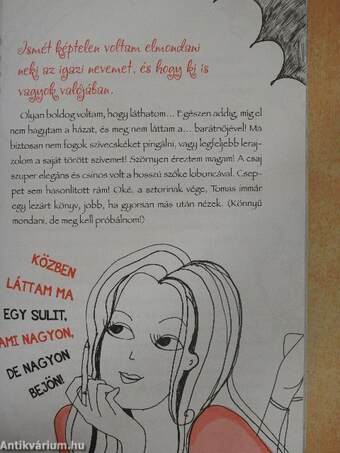 Ismét képtelen voltam elmondani
neki az igazi nevemet, és hogy ki is
vagyok valójában.
Olyan boldog voltam, hogy láthatom... Egészen addig, míg el
nem hagytam a házat, és meg nem láttam a... barátnőjével! Ma
biztosan nem fogok szívecskéket pingálni, vagy legfeljebb leraj-
zolom a saját törött szívemet! Szörnyen éreztem magam! A csaj
szuper elegáns és csinos volt a hosszú szőke loboncával. Csep-
pet sem hasonlított rám! Oké, a sztorinak vége, Tomas immár
egy lezárt könyv, jobb, ha gyorsan más után nézek. (Könnyű
mondani, de meg kell próbálnom!)
KÖZBEN
LÁTTAM MA
EGY SULIT,
AMI NAGYON,
DE NAGYON
BEJÖN!
Antikvárium.hu